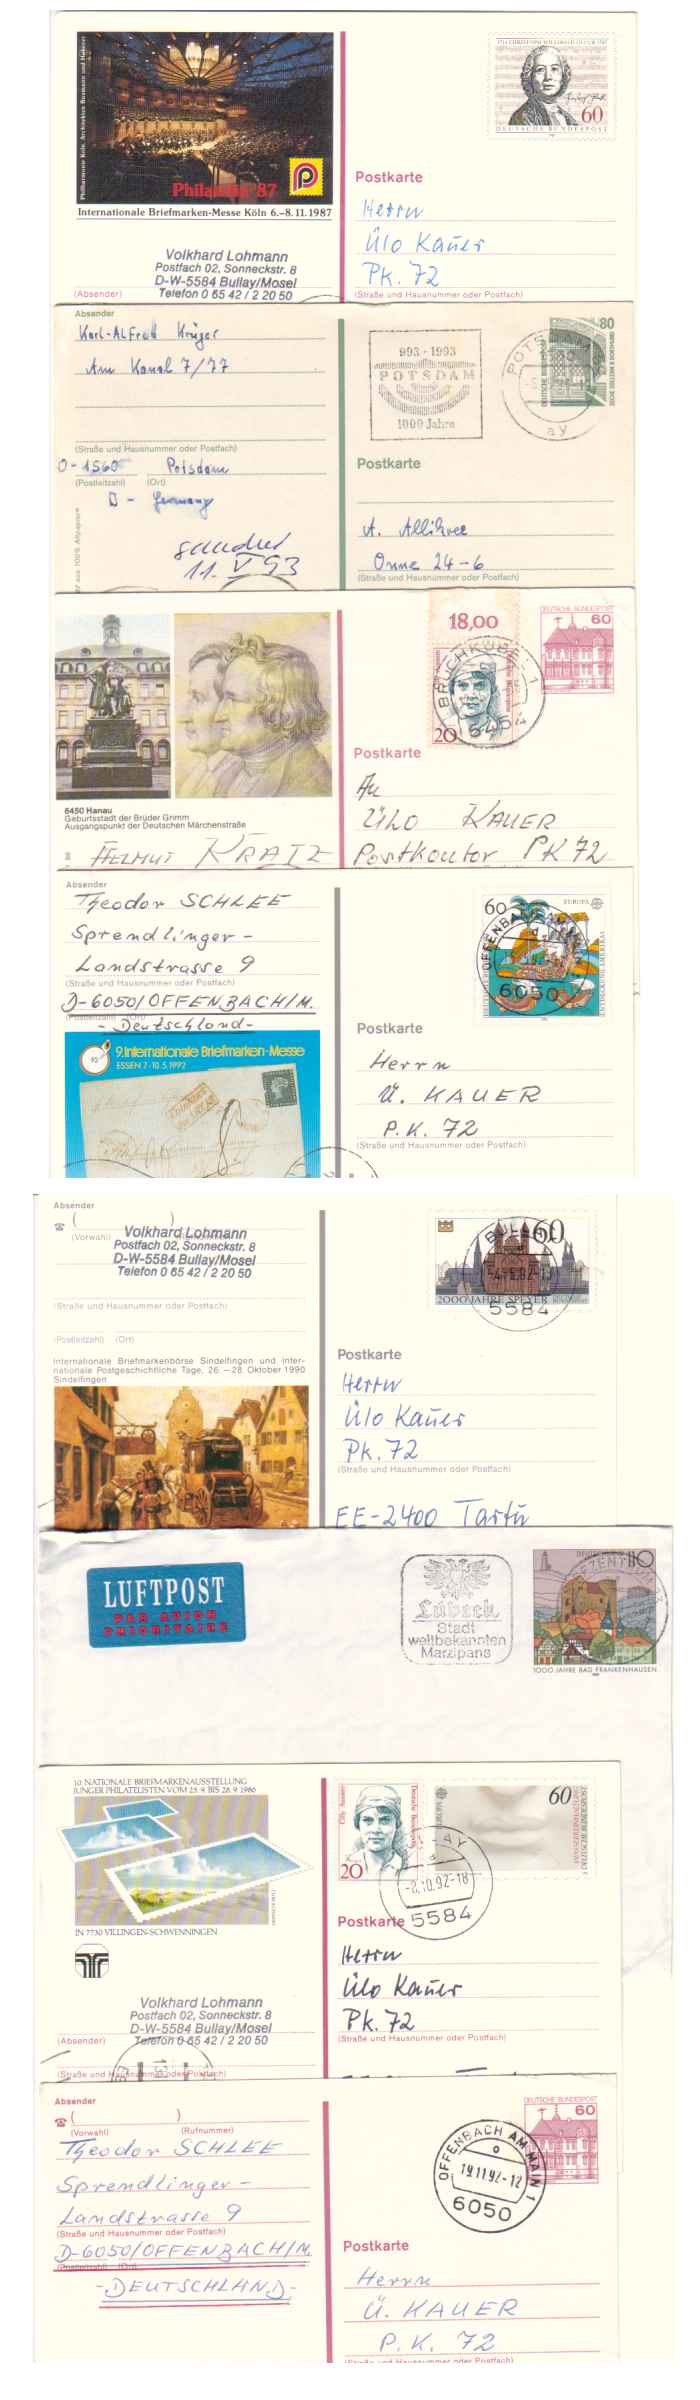 Philharmonie Köln, Architekten Busmann und Haberer
Philatelia '87
Internationale Briefmarken-Messe Köln 6.–8.11.1987
60
DEUTSCHE BUNDESPOST
Postkarte
Herrn
Ülo Kauer
Pk. 72
(Straße und Hausnummer oder Postfach)
Volkhard Lohmann
Postfach 02, Sonneckstr. 8
D-W-5584 Bullay/Mosel
Telefon 0 65 42 / 2 20 50
(Absender)
Absender
Karl-Alfred Krüger
Am Kanal 7/77
(Straße und Hausnummer oder Postfach)
O-1560 Potsdam
(Postleitzahl) (Ort)
D - Germany
11. V 93
993 - 1993
POTSDAM
1000 Jahre
POTSDAM
ay
80
Postkarte
A. Allikvee
Onne 24-6
(Straße und Hausnummer oder Postfach)
aus 100% Altpapier
6450 Hanau
Geburtsstadt der Brüder Grimm
Ausgangspunkt der Deutschen Märchenstraße
HELMUT KRATZ
18,00
20
5454
DEUTSCHE BUNDESPOST
60
Postkarte
An
ÜLO KAUER
Postkontor PK 72
Absender
Theodor SCHLEE
Sprendlinger-
Landstrasse 9
(Straße und Hausnummer oder Postfach)
D-6050/OFFENBACH/M.
(Postleitzahl) (Ort)
- Deutschland -
9. Internationale Briefmarken-Messe
ESSEN 7-10.5.1992
60
EUROPA
OFFENBACH AM MAIN
6050
Postkarte
Herrn
Ü. KAUER
P.K. 72
(Straße und Hausnummer oder Postfach)
Absender
(Vorwahl)
Volkhard Lohmann
Postfach 02, Sonneckstr. 8
D-W-5584 Bullay/Mosel
Telefon 0 65 42 / 2 20 50
(Straße und Hausnummer oder Postfach)
(Postleitzahl) (Ort)
Internationale Briefmarkenbörse Sindelfingen und Inter-
nationale Postgeschichtliche Tage, 26. – 28. Oktober 1990
Sindelfingen
60
BULLAY
2000 JAHRE SPEYER
5584
Postkarte
Herrn
Ülo Kauer
Pk. 72
(Straße und Hausnummer oder Postfach)
EE-2400 Tartu
LUFTPOST
PAR AVION
PRIORITAIRE
Lübeck
Stadt
weltbekannten
Marzipans
110
1000 JAHRE BAD FRANKENHAUSEN
10. NATIONALE BRIEFMARKENAUSSTELLUNG
JUNGER PHILATELISTEN VOM 23.9. BIS 28.9.1986
IN 7730 VILLINGEN-SCHWENNINGEN
Cilly Aussem
Deutsche Bundespost
20
60
BULLAY
-8.10.92-18
5584
Postkarte
Herrn
Ülo Kauer
Pk. 72
(Straße und Hausnummer oder Postfach)
Volkhard Lohmann
Postfach 02, Sonneckstr. 8
D-W-5584 Bullay/Mosel
Telefon 0 65 42 / 2 20 50
(Absender)
(Straße und Hausnummer oder Postfach)
Absender
(Vorwahl) (Rufnummer)
Theodor SCHLEE
Sprendlinger-
Landstrasse 9
(Straße und Hausnummer oder Postfach)
D-6050/OFFENBACH/M.
(Postleitzahl) (Ort)
- DEUTSCHLAND -
DEUTSCHE BUNDESPOST
60
OFFENBACH AM MAIN 1
19.11.92-12
6050
Postkarte
Herrn
Ü. KAUER
P.K. 72
(Straße und Hausnummer oder Postfach)